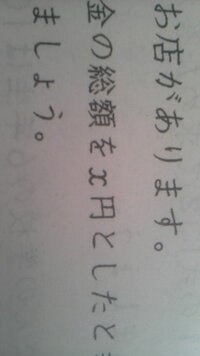 お店があります。
金の総額をx円としたと
ましょう。